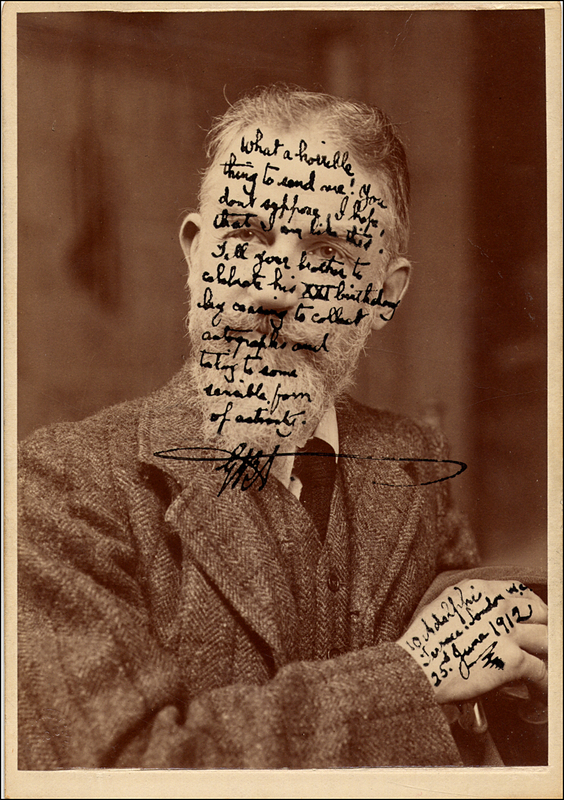 What a horrible
thing to send me! You
dont suppose, I hope,
that I am like this!
Tell your brother to
celebrate his XXI birthday
by ceasing to collect
autographs and
taking to some
sensible form
of activity.
GBS
10 Adelphi
Terrace. London W.C.
25th June 1912